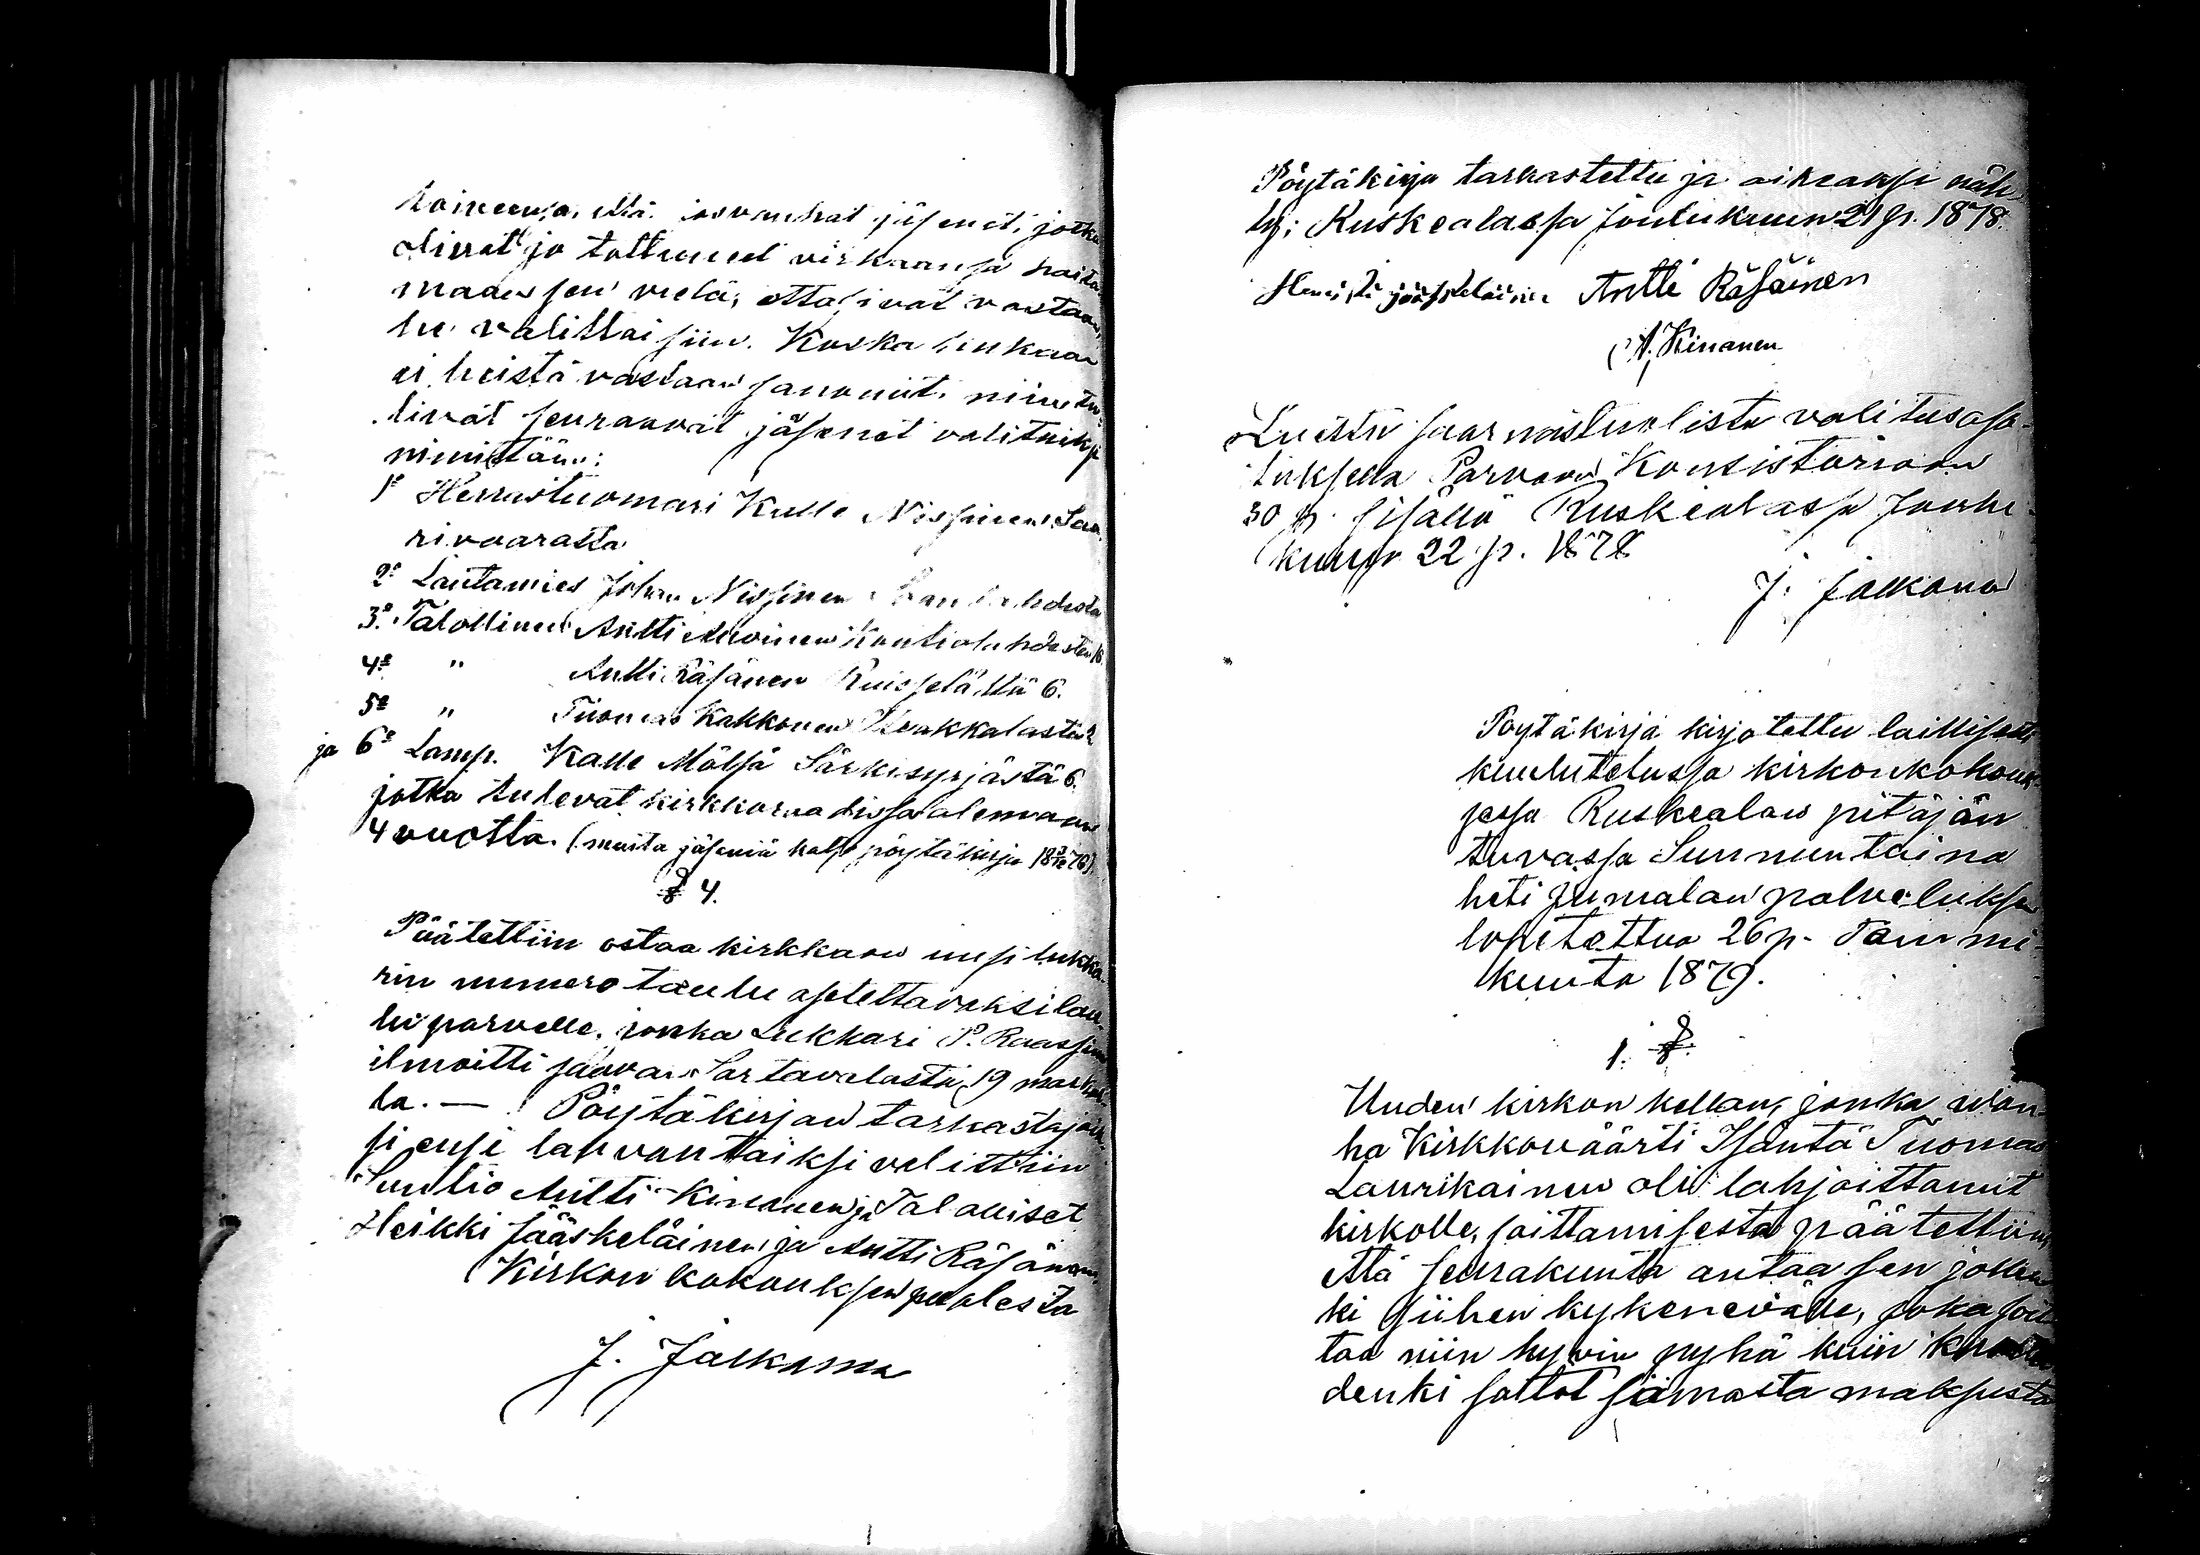 että jos vanhat jäsenet, jotka
olivat jo tottuneet virkaansa hoita-
maan sen vielä, ottasivat vastaan,
he valittaisiin. Koska kukaan
ei heistä vastaan sanonut, niin tu-
livat seuraavat jäsenet valituiksi
nimittäin:
1:o Herrastuomari Kalle Nissinen Saa-
rivaarasta
2:o Lautamies Johan Nissinen
3:o Talollinen Antti Kontiolahdesta 16.
4:o " Antti Räsänen Ruisselältä 6.
5:o " Tuomas Kakkonen
ja 6:o Lamp. Kalle Mölsä Särkisyrjästä 6.
jotka tulevat kirkkoraadissa olemaan
4 vuotta. (muita jäseniä katso pöytäkirja
§ 4.
Päätettiin ostaa kirkkaan uusi lukka-
rin numero taulu asetettavaksi lau-
luparvelle, jonka Lukkari P. Raassina
ilmoitti saavan Sortavalasta 19 markal-
la. — Pöytäkirjan tarkastajaik-
si ensi lauvantaiksi valittiin
Suntio Antti Kinanen ja Talolliset
Heikki Jääskeläinen ja Antti Räsänen.
Kirkon kokouksen puolesta
J. Jalkanen
Pöytäkirja tarkastettu ja oikeaksi näh-
ty; Ruskealassa Joulukuun 21 p. 1878.
Heikki Jääskeläinen Antti Räsäinen
A. Kinanen
Luettu saarnastuolista valitusoso-
tuksella Porvoon Konsistorioon
30 p. sisällä Ruskealassa Joulu-
kuun 22 p. 1878
J. Jalkanen
Pöytäkirja kirjotettu laillisesti
kuulutetussa kirkonkokouk-
sessa Ruskealan pitäjän
tuvassa Sunnuntaina
heti Jumalan palveluksen
lopetettua 26 p. Tammi-
kuuta 1879.
1. §.
Uuden kirkon kellon, jonka wan-
ha Kirkkoväärti Isäntä Tuomas
Laurikainen oli lahjoittanut
kirkolle, soittamisesta päätettiin,
että seurakunta antaa sen jollen-
ki siihen kykenevälle, joka soit-
taa niin hyvin pyhä kuin
denki soitot samasta maksusta